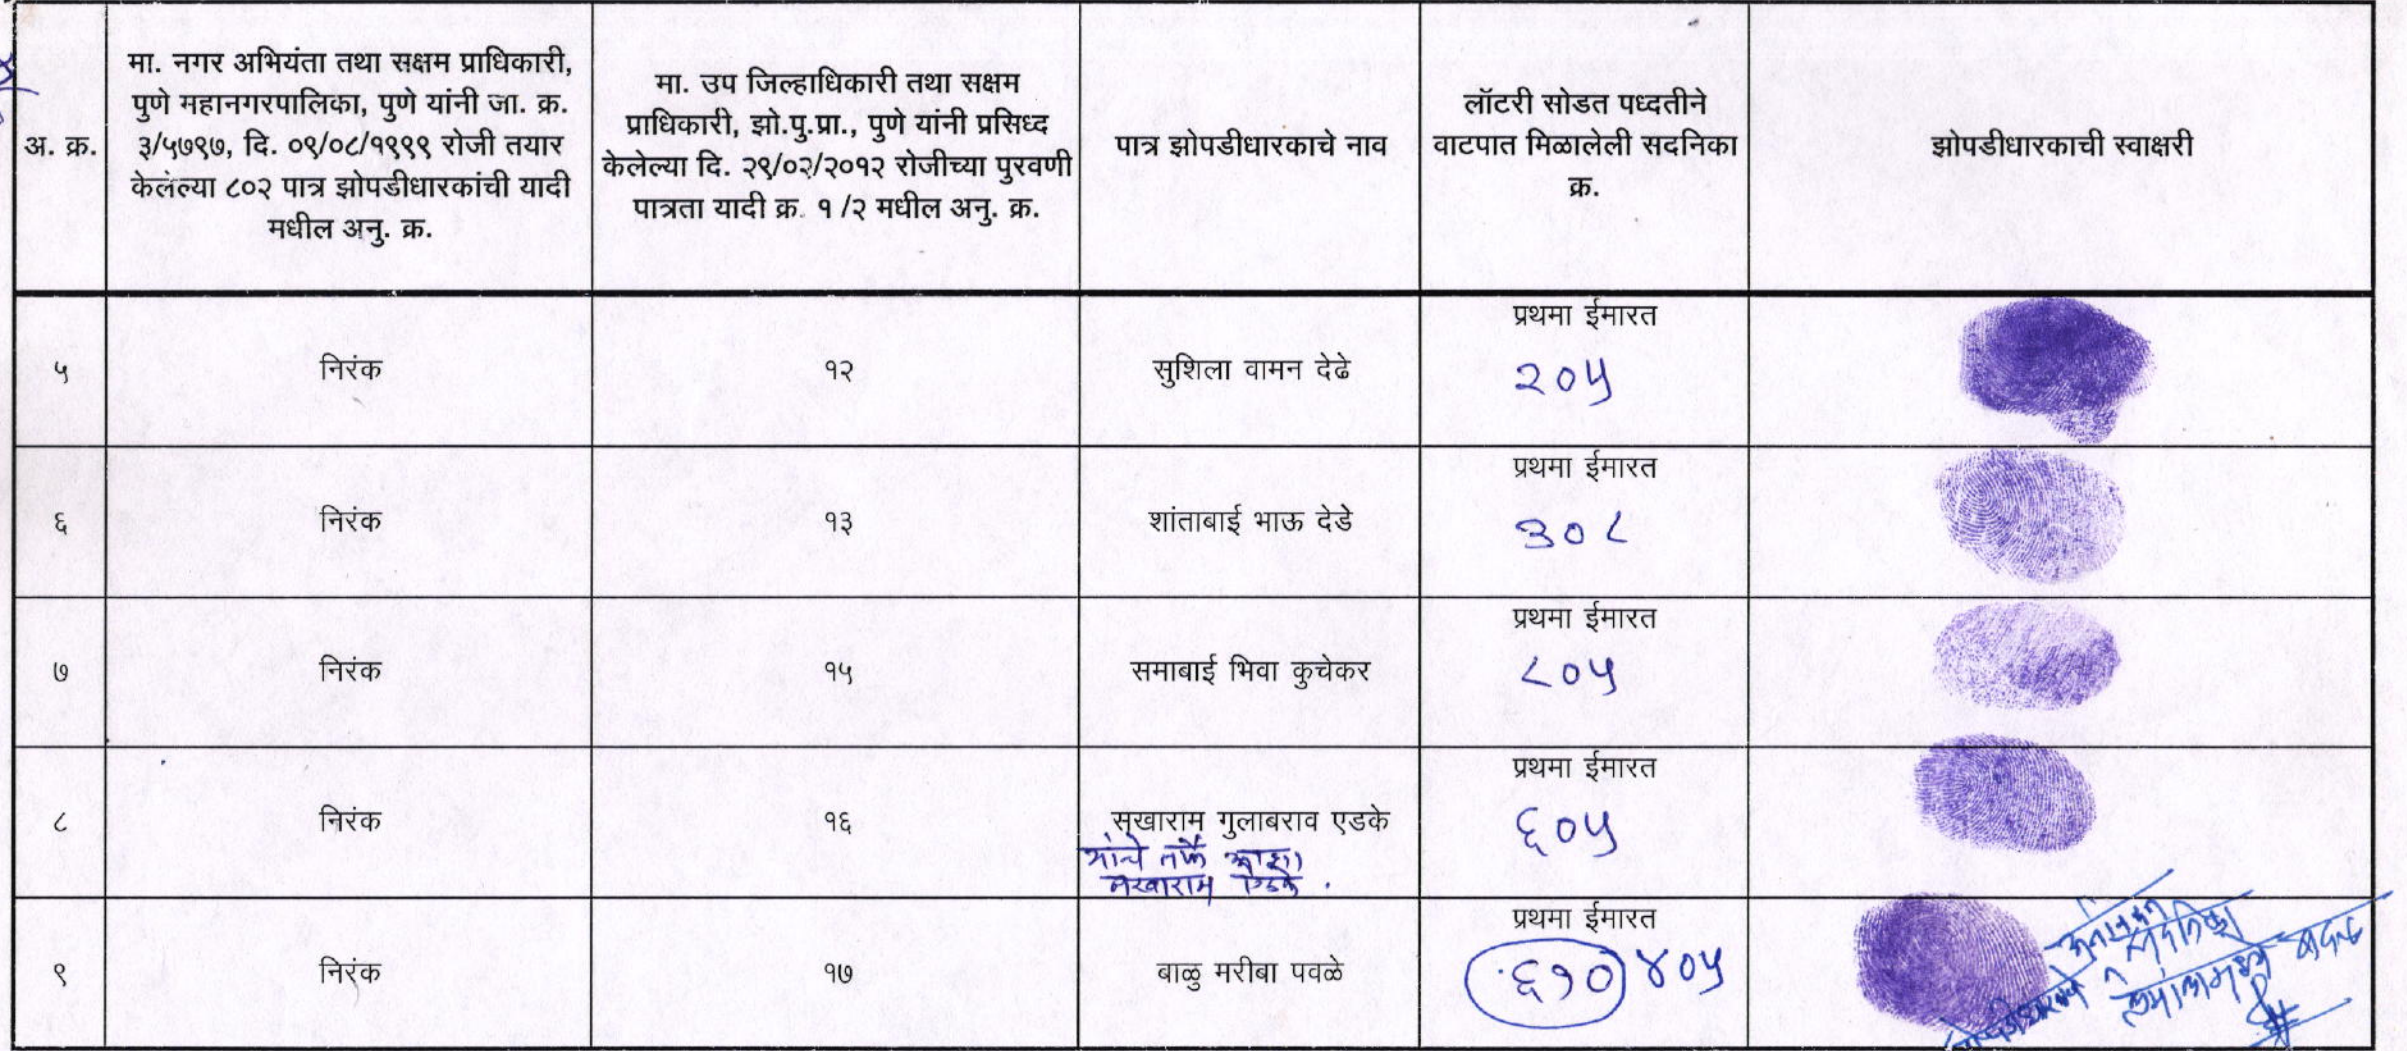 अ. क्र.
मा. नगर अभियंता तथा सक्षम प्राधिकारी,
पुणे महानगरपालिका, पुणे यांनी जा. क्र.
३/५७९७, दि. ०९/०८/१९९९ रोजी तयार
केलेल्या ८०२ पात्र झोपडीधारकांची यादी
मधील अनु. क्र.
मा. उप जिल्हाधिकारी तथा सक्षम
प्राधिकारी, झो.पु.प्रा., पुणे यांनी प्रसिध्द
केलेल्या दि. २९/०२/२०१२ रोजीच्या पुरवणी
पात्रता यादी क्र. १/२ मधील अनु. क्र.
पात्र झोपडीधारकाचे नाव
लॉटरी सोडत पध्दतीने
वाटपात मिळालेली सदनिका
क्र.
झोपडीधारकाची स्वाक्षरी
प्रथमा ईमारत
५ निरंक १२ सुशिला वामन देढे २०५
प्रथमा ईमारत
६ निरंक १३ शांताबाई भाऊ देडे ३०८
प्रथमा ईमारत
७ निरंक १५ समाबाई भिवा कुचेकर ८०५
प्रथमा ईमारत
८ निरंक १६ सखाराम गुलाबराव एडके ६०५
यांचे तर्फे
सखाराम एडके.
प्रथमा ईमारत
९ निरंक १७ बाळु मरीबा पवळे ६१० ४०५
सदनिका